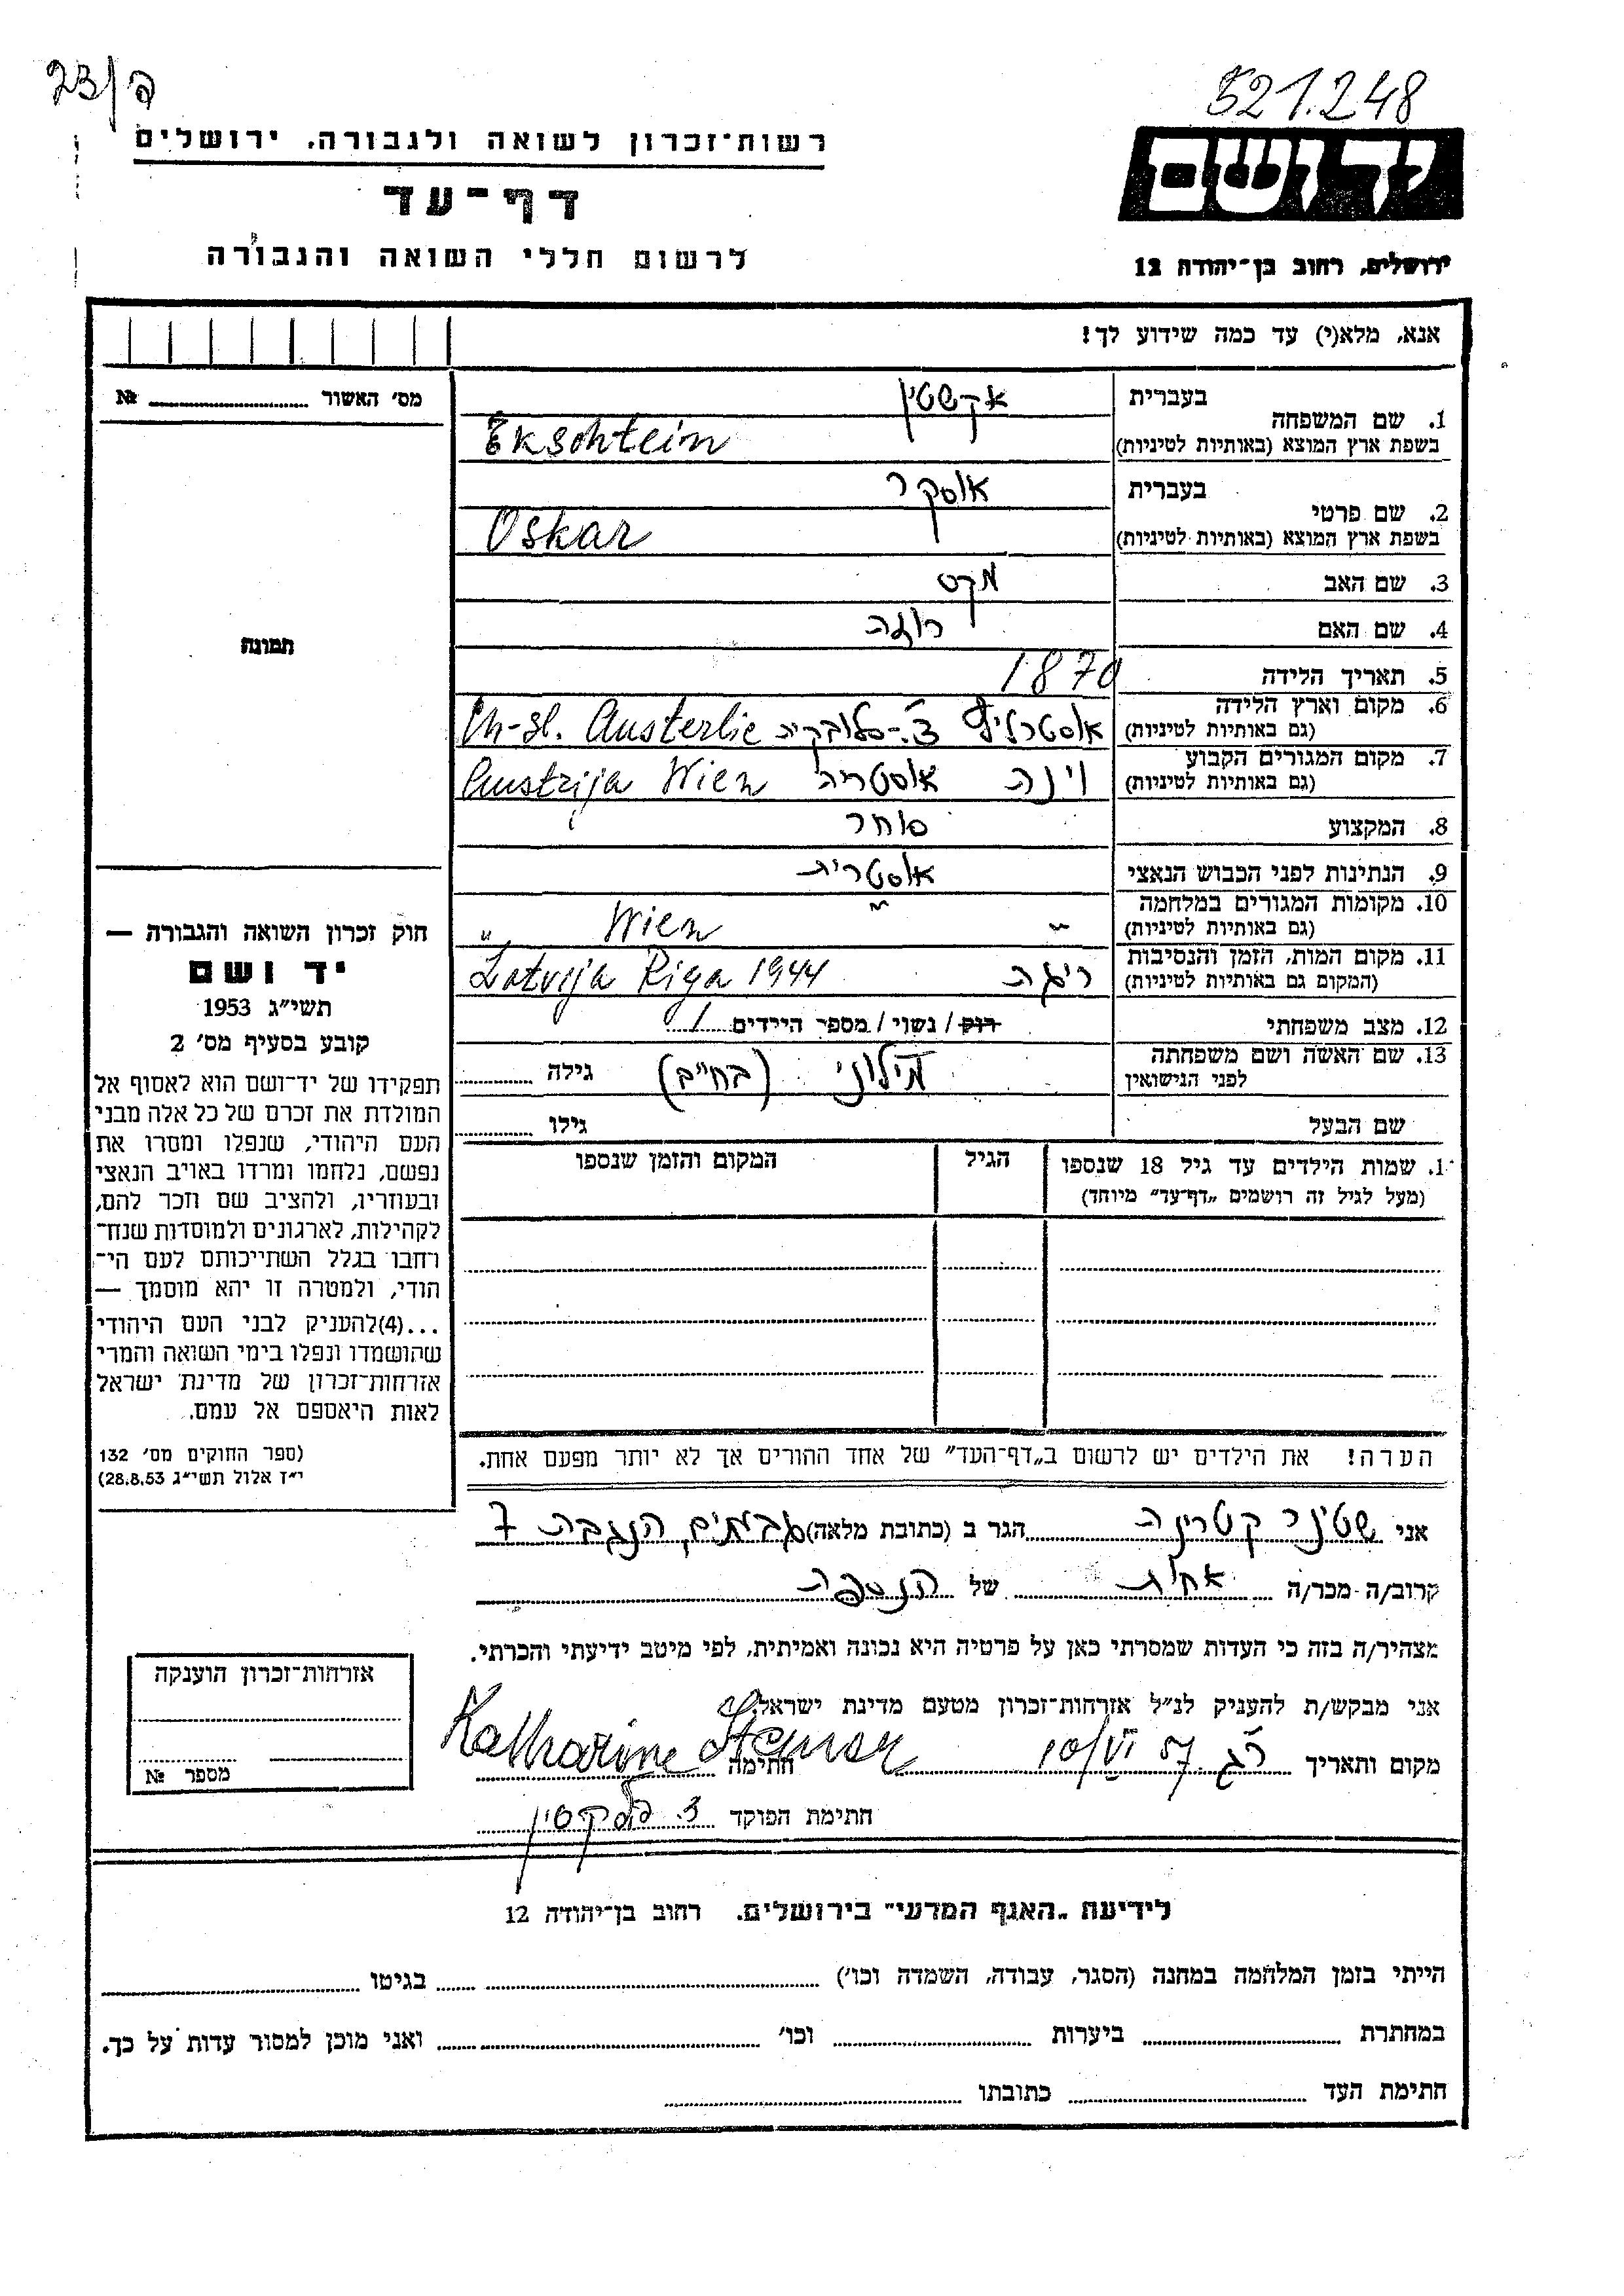 23/פ
521.248
רשות־זכרון לשואה ולגבורה, ירושלים
דף־עד
לרשום חללי השואה והגבורה
ידושם
ירושלים, רחוב בן־יהודה 12
אנא, מלא(י) עד כמה שידוע לך!
מס' האשור № 
1. שם המשפחה בעברית אקשטין
בשפת ארץ המוצא (באותיות לטיניות) Ekschtein
2. שם פרטי בעברית אוסקר
בשפת ארץ המוצא (באותיות לטיניות) Oskar
3. שם האב מקס
4. שם האם רוזה
5. תאריך הלידה 1870
6. מקום וארץ הלידה (גם באותיות לטיניות) אוסטרליץ צ'.-סלובקיה Ch-sl. Austerlic
7. מקום המגורים הקבוע (גם באותיות לטיניות) וינה אוסטריה Wien Austrija
8. המקצוע סוחר
9. הנתינות לפני הכבוש הנאצי אוסטרית
10. מקומות המגורים במלחמה (גם באותיות לטיניות) " " Wien "
11. מקום המות, הזמן והנסיבות (המקום גם באותיות לטיניות) ריגה Latvija Riga 1944
12. מצב משפחתי רוק / נשוי / מספר הילדים 1
13. שם האשה ושם משפחתה לפני הנישואין (בחיים) גילה
שם הבעל גילו
1. שמות הילדים עד גיל 18 שנספו הגיל המקום והזמן שנספו
(מעל לגיל זה רושמים „דף־עד" מיוחד)
הערה! את הילדים יש לרשום ב„דף־העד" של אחד ההורים אך לא יותר מפעם אחת.
תמונה
חוק זכרון השואה והגבורה —
יד ושם
תשי"ג 1953
קובע בסעיף מס' 2
תפקידו של יד־ושם הוא לאסוף אל
המולדת את זכרם של כל אלה מבני
העם היהודי, שנפלו ומסרו את
נפשם, נלחמו ומרדו באויב הנאצי
ובעוזריו, ולהציב שם וזכר להם,
לקהילות, לארגונים ולמוסדות שנח־
רחבו בגלל השתייכותם לעם הי־
הודי, ולמטרה זו יהא מוסמך —
...(4)להעניק לבני העם היהודי
שהושמדו ונפלו בימי השואה והמרי
אזרחות־זכרון של מדינת ישראל
לאות היאספם אל עמם.
(ספר החוקים מס' 132
י"ז אלול תשי"ג 28.8.53)
אני שטינר קטרינה הגר ב (כתובת מלאה) גבעתים, הנגבה 7
קרוב/ה מכר/ה אחות של הנספה
מצהיר/ה בזה כי העדות שמסרתי כאן על פרטיה היא נכונה ואמיתית, לפי מיטב ידיעתי והכרתי.
אני מבקש/ת להעניק לנ"ל אזרחות־זכרון מטעם מדינת ישראל
מקום ותאריך ר"ג 10/VI 57 חתימה Katharine Steiner
חתימת הפוקד
אזרחות־זכרון הוענקה
מספר №
לידיעת „האגף המדעי" בירושלים. רחוב בן־יהודה 12
הייתי בזמן המלחמה במחנה (הסגר, עבודה, השמדה וכו') בגיטו
במחתרת ביערות וכו' ואני מוכן למסור עדות על כך.
חתימת העד כתובתו